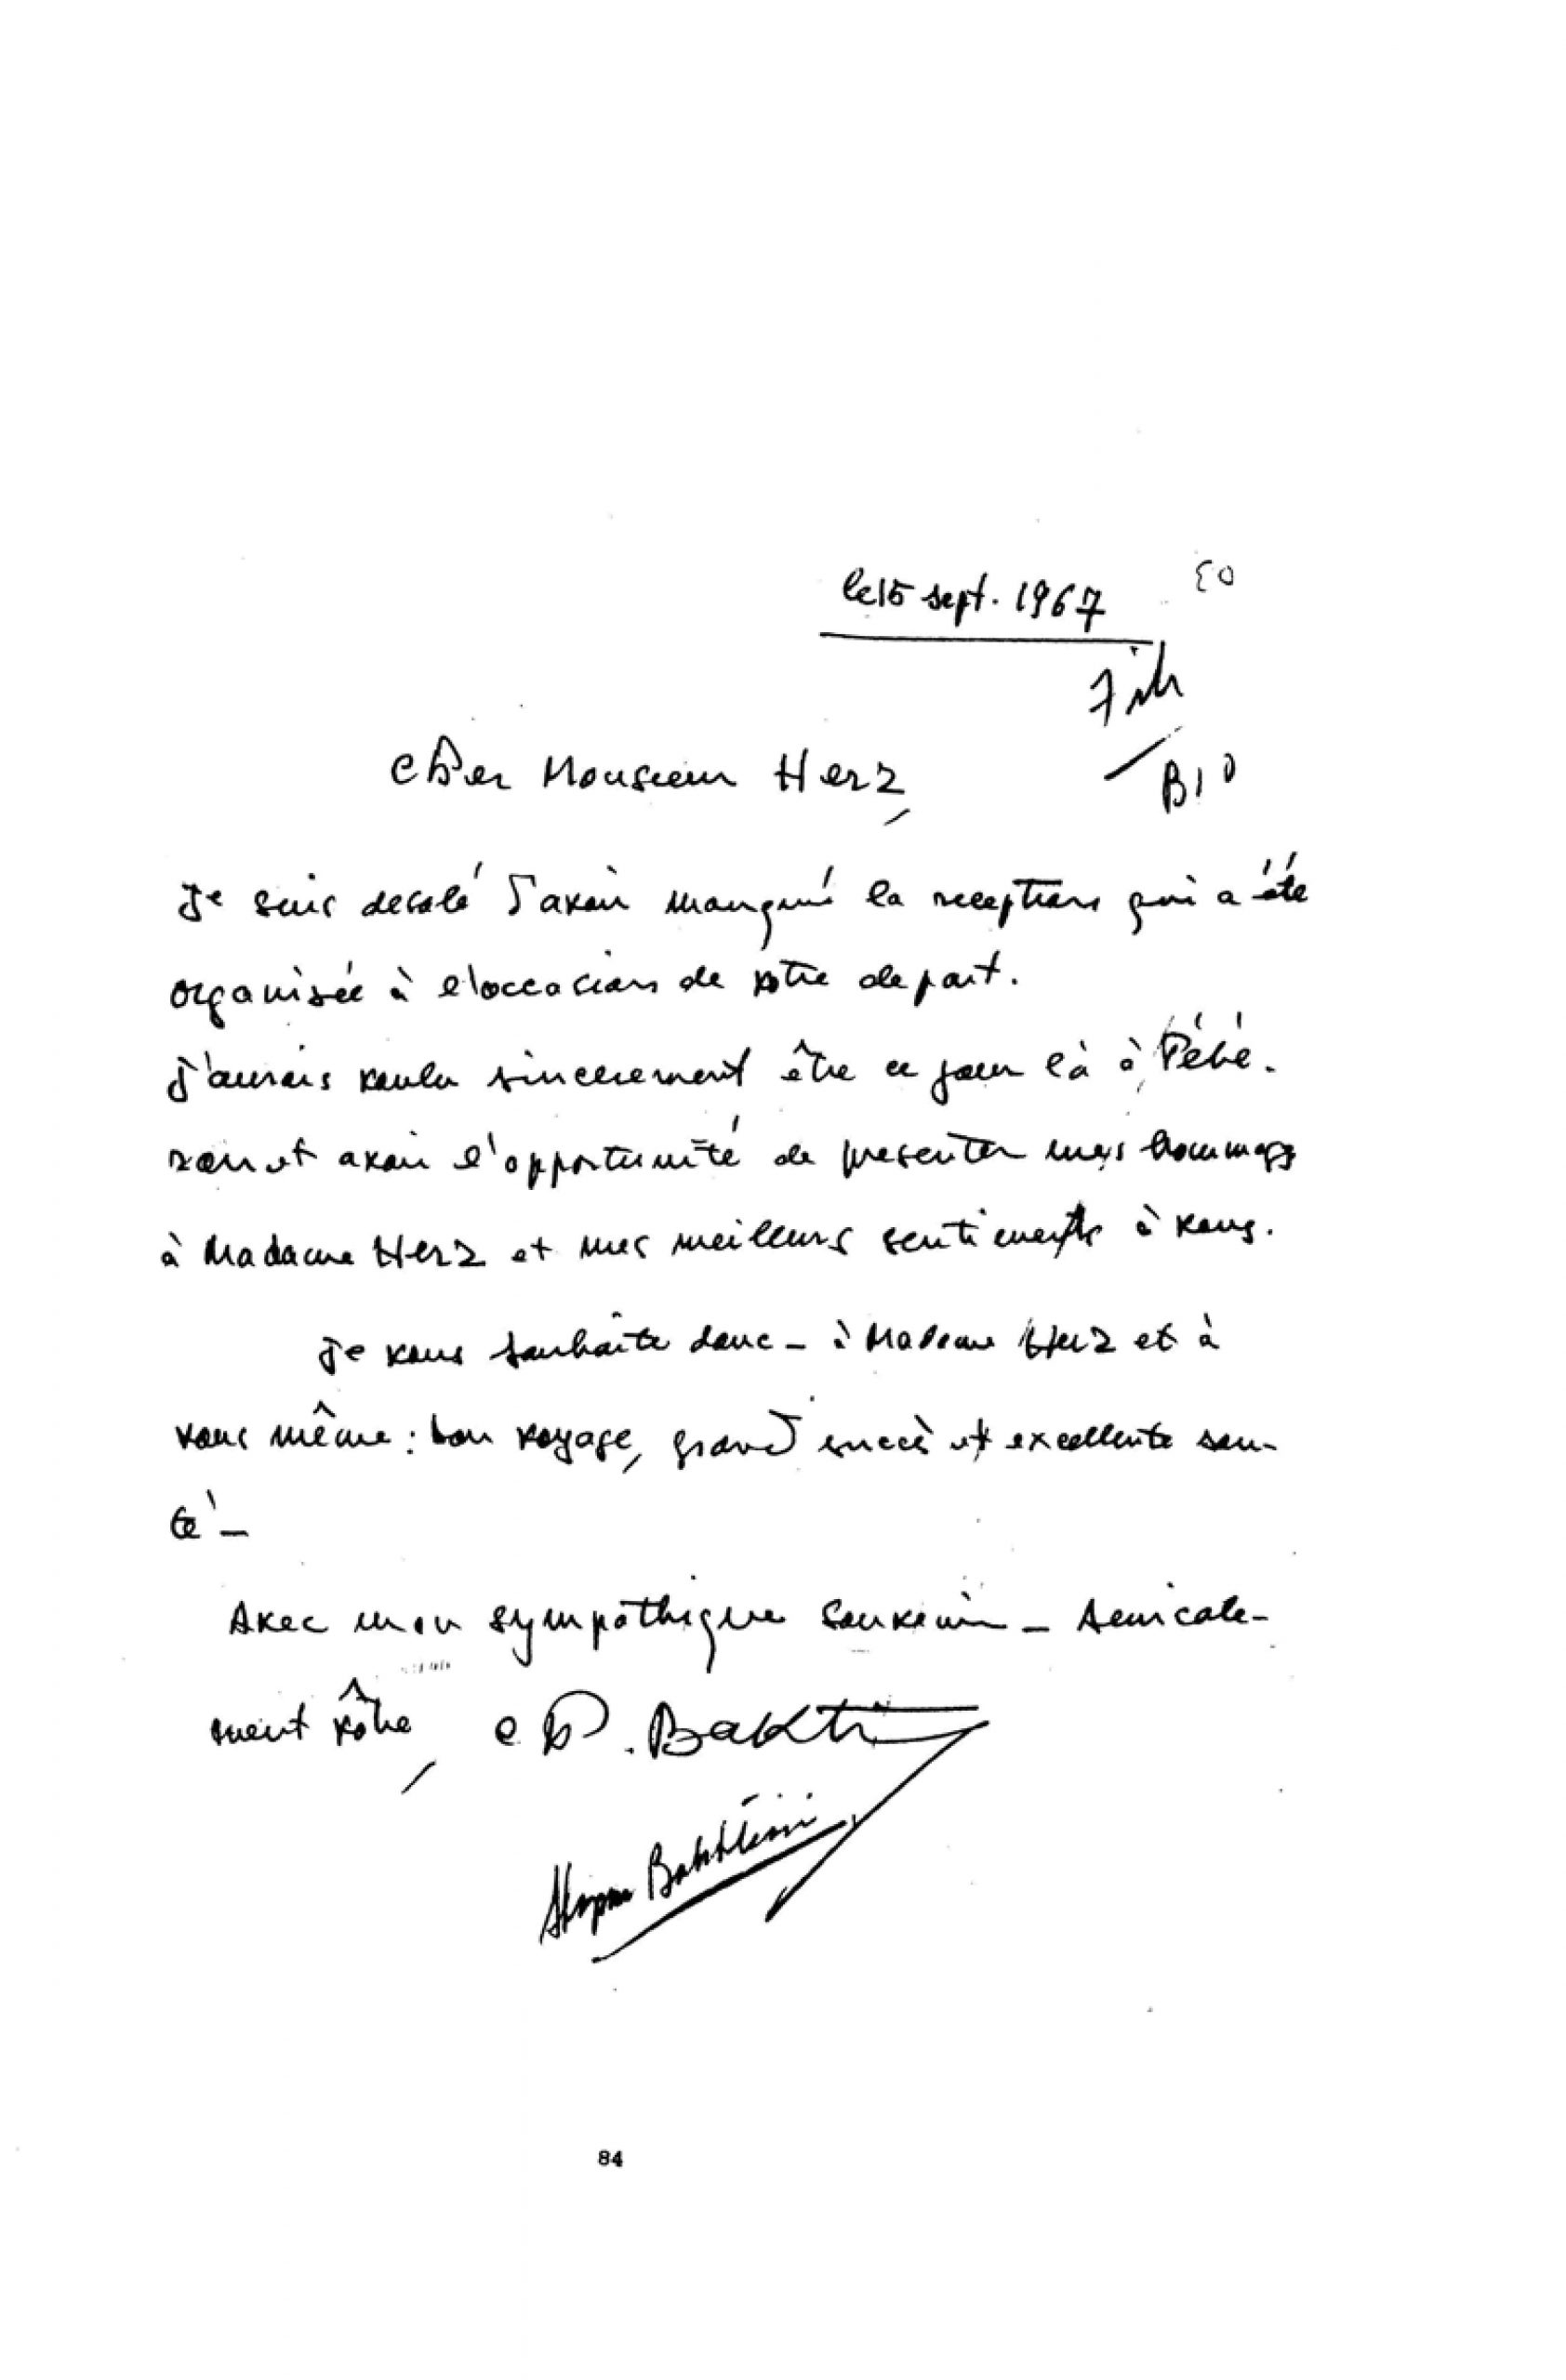 le 15 sept. 1967
BIO
Cher Monsieur Herz,
Je suis desolé d'avoir manqué la reception qui a été
organisée à l'occasion de votre depart.
J'aurais voulu sincerement être ce jour là à Téhé-
ran et avoir l'opportunité de presenter mes hommages
à Madame Herz et mes meilleurs sentiments à vous.
Je vous souhaite donc - à Madame Herz et à
vous même : bon voyage, grand succès et excellente san-
té -
Avec mon sympathique souvenir - Amicale-
ment vôtre,
Ch. Bakhti
Bakhtiar
84